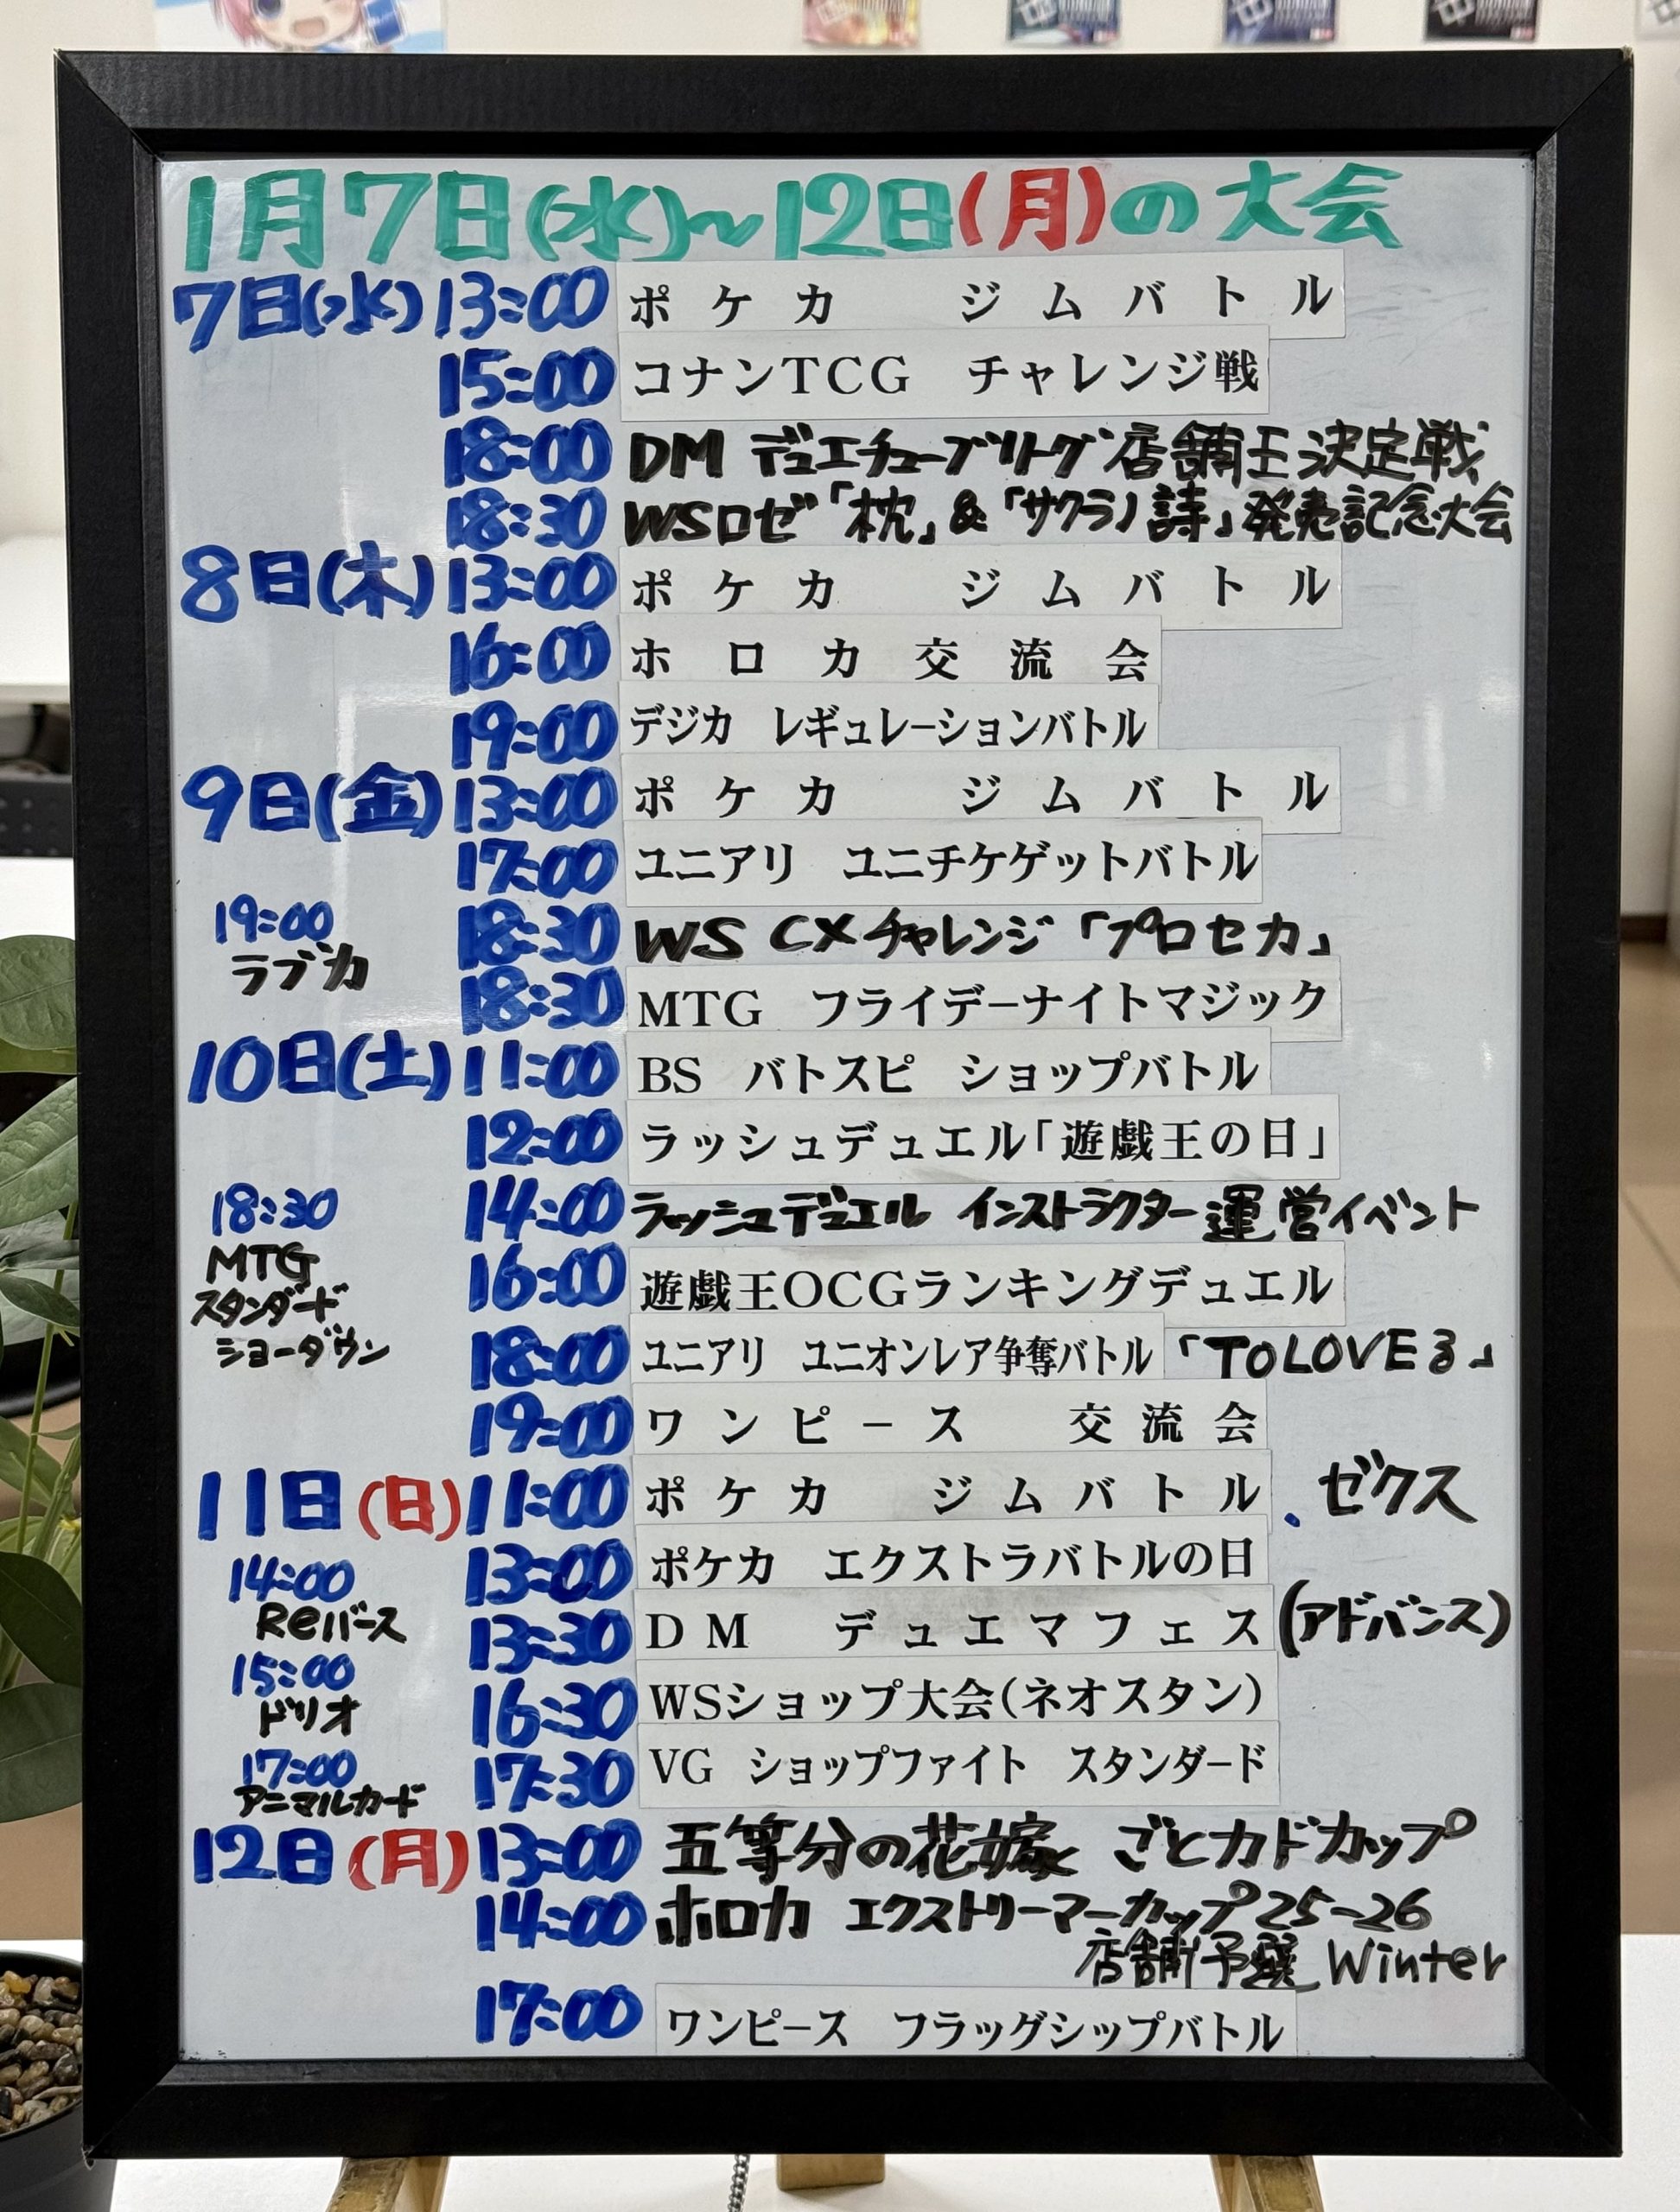 1月7日(水)～12日(月)の大会
7日(水) 13:00 ポケカ ジムバトル
15:00 コナンTCG チャレンジ戦
18:00 DM デュエチューブリーグ 店舗王決定戦
18:30 WSロゼ「枕」&「サクラノ詩」発売記念大会
8日(木) 13:00 ポケカ ジムバトル
16:00 ホロカ交流会
19:00 デジカ レギュレーションバトル
9日(金) 13:00 ポケカ ジムバトル
17:00 ユニアリ ユニチケゲットバトル
18:30 WS CXチャレンジ「プロセカ」
19:00
ラブカ
18:30 MTG フライデーナイトマジック
10日(土) 11:00 BS バトスピ ショップバトル
12:00 ラッシュデュエル「遊戯王の日」
14:00 ラッシュデュエル インストラクター運営イベント
18:30
MTG
スタンダード
ショーダウン
16:00 遊戯王OCGランキングデュエル
18:00 ユニアリ ユニオンレア争奪バトル「TOLOVEる」
19:00 ワンピース 交流会
11日(日) 11:00 ポケカ ジムバトル . ゼクス
13:00 ポケカ エクストラバトルの日
14:00
Reバース
13:30 DM デュエマフェス (アドバンス)
15:00
ドリオ
16:30 WSショップ大会(ネオスタン)
17:00
アニマルカード
17:30 VG ショップファイト スタンダード
12日(月) 13:00 五等分の花嫁 ごとカドカップ
14:00 ホロカ エクストリーマーカップ25-26
店舗予選 Winter
17:00 ワンピース フラッグシップバトル